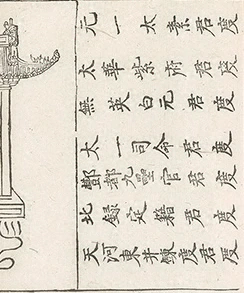 元一太素君度
太華紫府君度
無英白元君度
太一司命君度
酆都九壘官君度
北錄定籍君度
天河東井鍊度君度